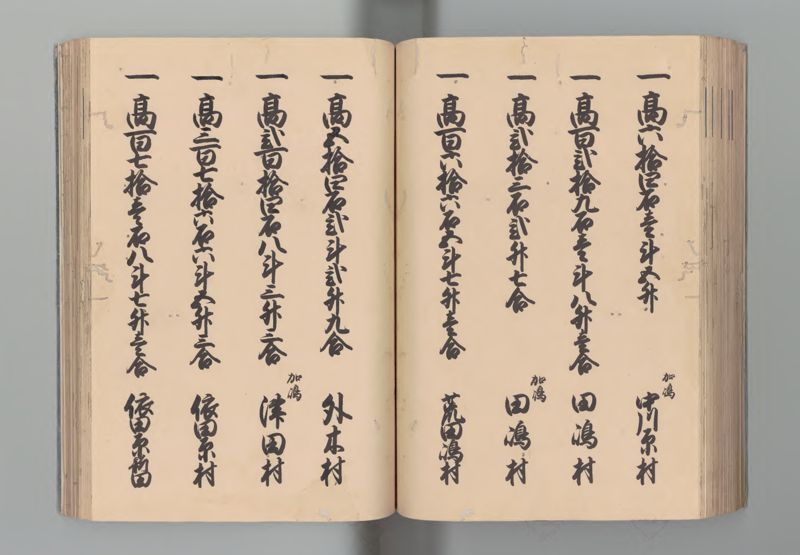 一 高六拾四石壱斗五升 加嶋 中川原村
一 高百弐拾九石壱斗八升壱合 田嶋村
一 高弐拾三石弐升七合 加嶋 田嶋村
一 高百六拾六石五斗七升壱合 荒田嶋村
一 高五拾四石弐斗弐升九合 外木村
一 高弐百拾四石八斗三升二合 加嶋 津田村
一 高三百七拾六石六斗五升三合 依田原村
一 高百七拾壱石八斗七升壱合 依田原新田